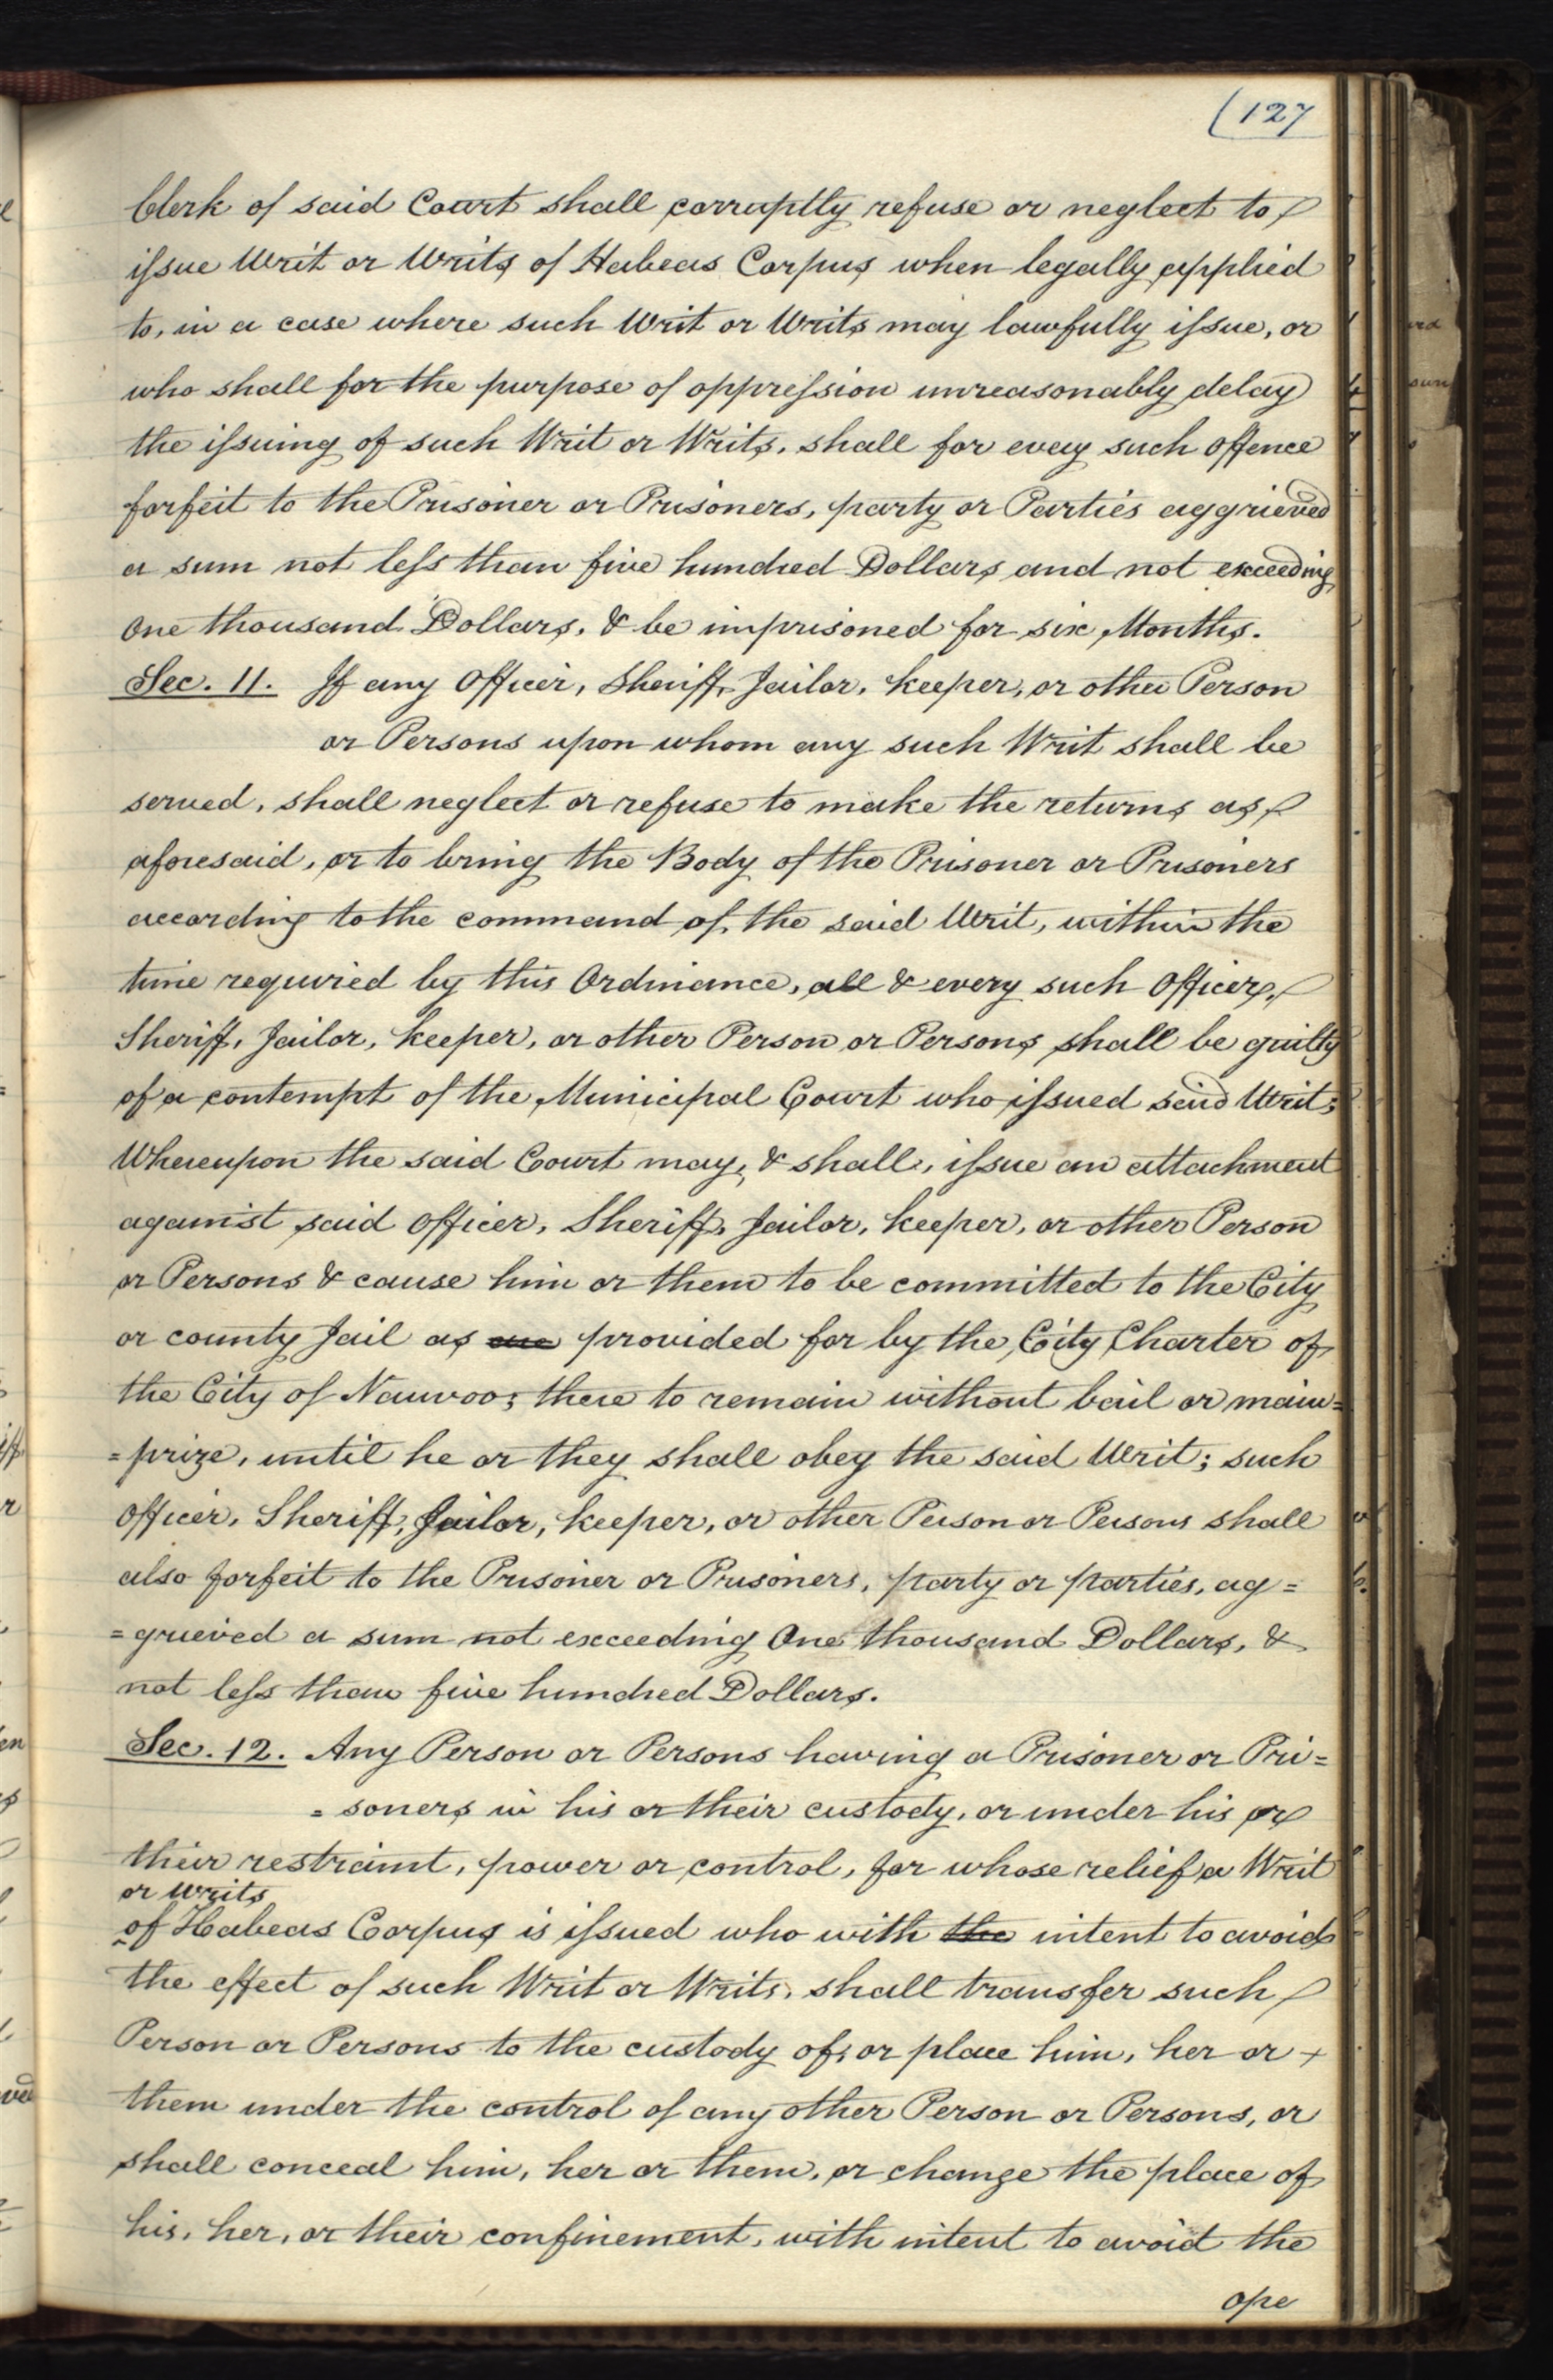 (127
Clerk of said Court shall corruptly refuse or neglect to
issue Writ or Writs of Habeas Corpus when legally applied
to, in a case where such Writ or Writs may lawfully issue, or
who shall for the purpose of oppression unreasonably delay
the issuing of such Writ or Writs, shall for every such offence
forfeit to the Prisoner or Prisoners, party or Parties aggrieved
a sum not less than five hundred Dollars and not exceeding
One thousand Dollars, & be imprisoned for six Months.
Sec. 11. If any Officer, Sheriff, Jailor, keeper, or other Person
or Persons upon whom any such Writ shall be
served, shall neglect or refuse to make the returns as
aforesaid, or to bring the Body of the Prisoner or Prisoners
according to the command of, the said Writ, within the
time required by this Ordinance, all & every such Officer,
Sheriff, Jailor, keeper, or other Person or Persons shall be guilty
of a contempt of the Municipal Court who issued said Writ;
Whereupon the said Court may, & shall, issue an attachment
against said officer, Sheriff, Jailor, keeper, or other Person
or Persons & cause him or them to be committed to the City
or county Jail as are provided for by the City Charter of
the City of Nauvoo; there to remain without bail or main=
=prize, until he or they shall obey the said Writ; such
Officer, Sheriff, Jailor, keeper, or other Person or Persons shall
also forfeit to the Prisoner or Prisoners, party or parties, ag=
=grieved a sum not exceeding One thousand Dollars, &
not less than five hundred Dollars.
Sec. 12. Any Person or Persons having a Prisoner or Pri=
=soners in his or their custody, or under his or
their restraint, power or control, for whose relief a Writ
or writs
of Habeas Corpus is issued who with the intent to avoid
the effect of such Writ or Writs, shall transfer such
Person or Persons to the custody of, or place him, her or
them under the control of any other Person or Persons, or
shall conceal him, her or them, or change the place of
his, her, or their confinement, with intent to avoid the
ope